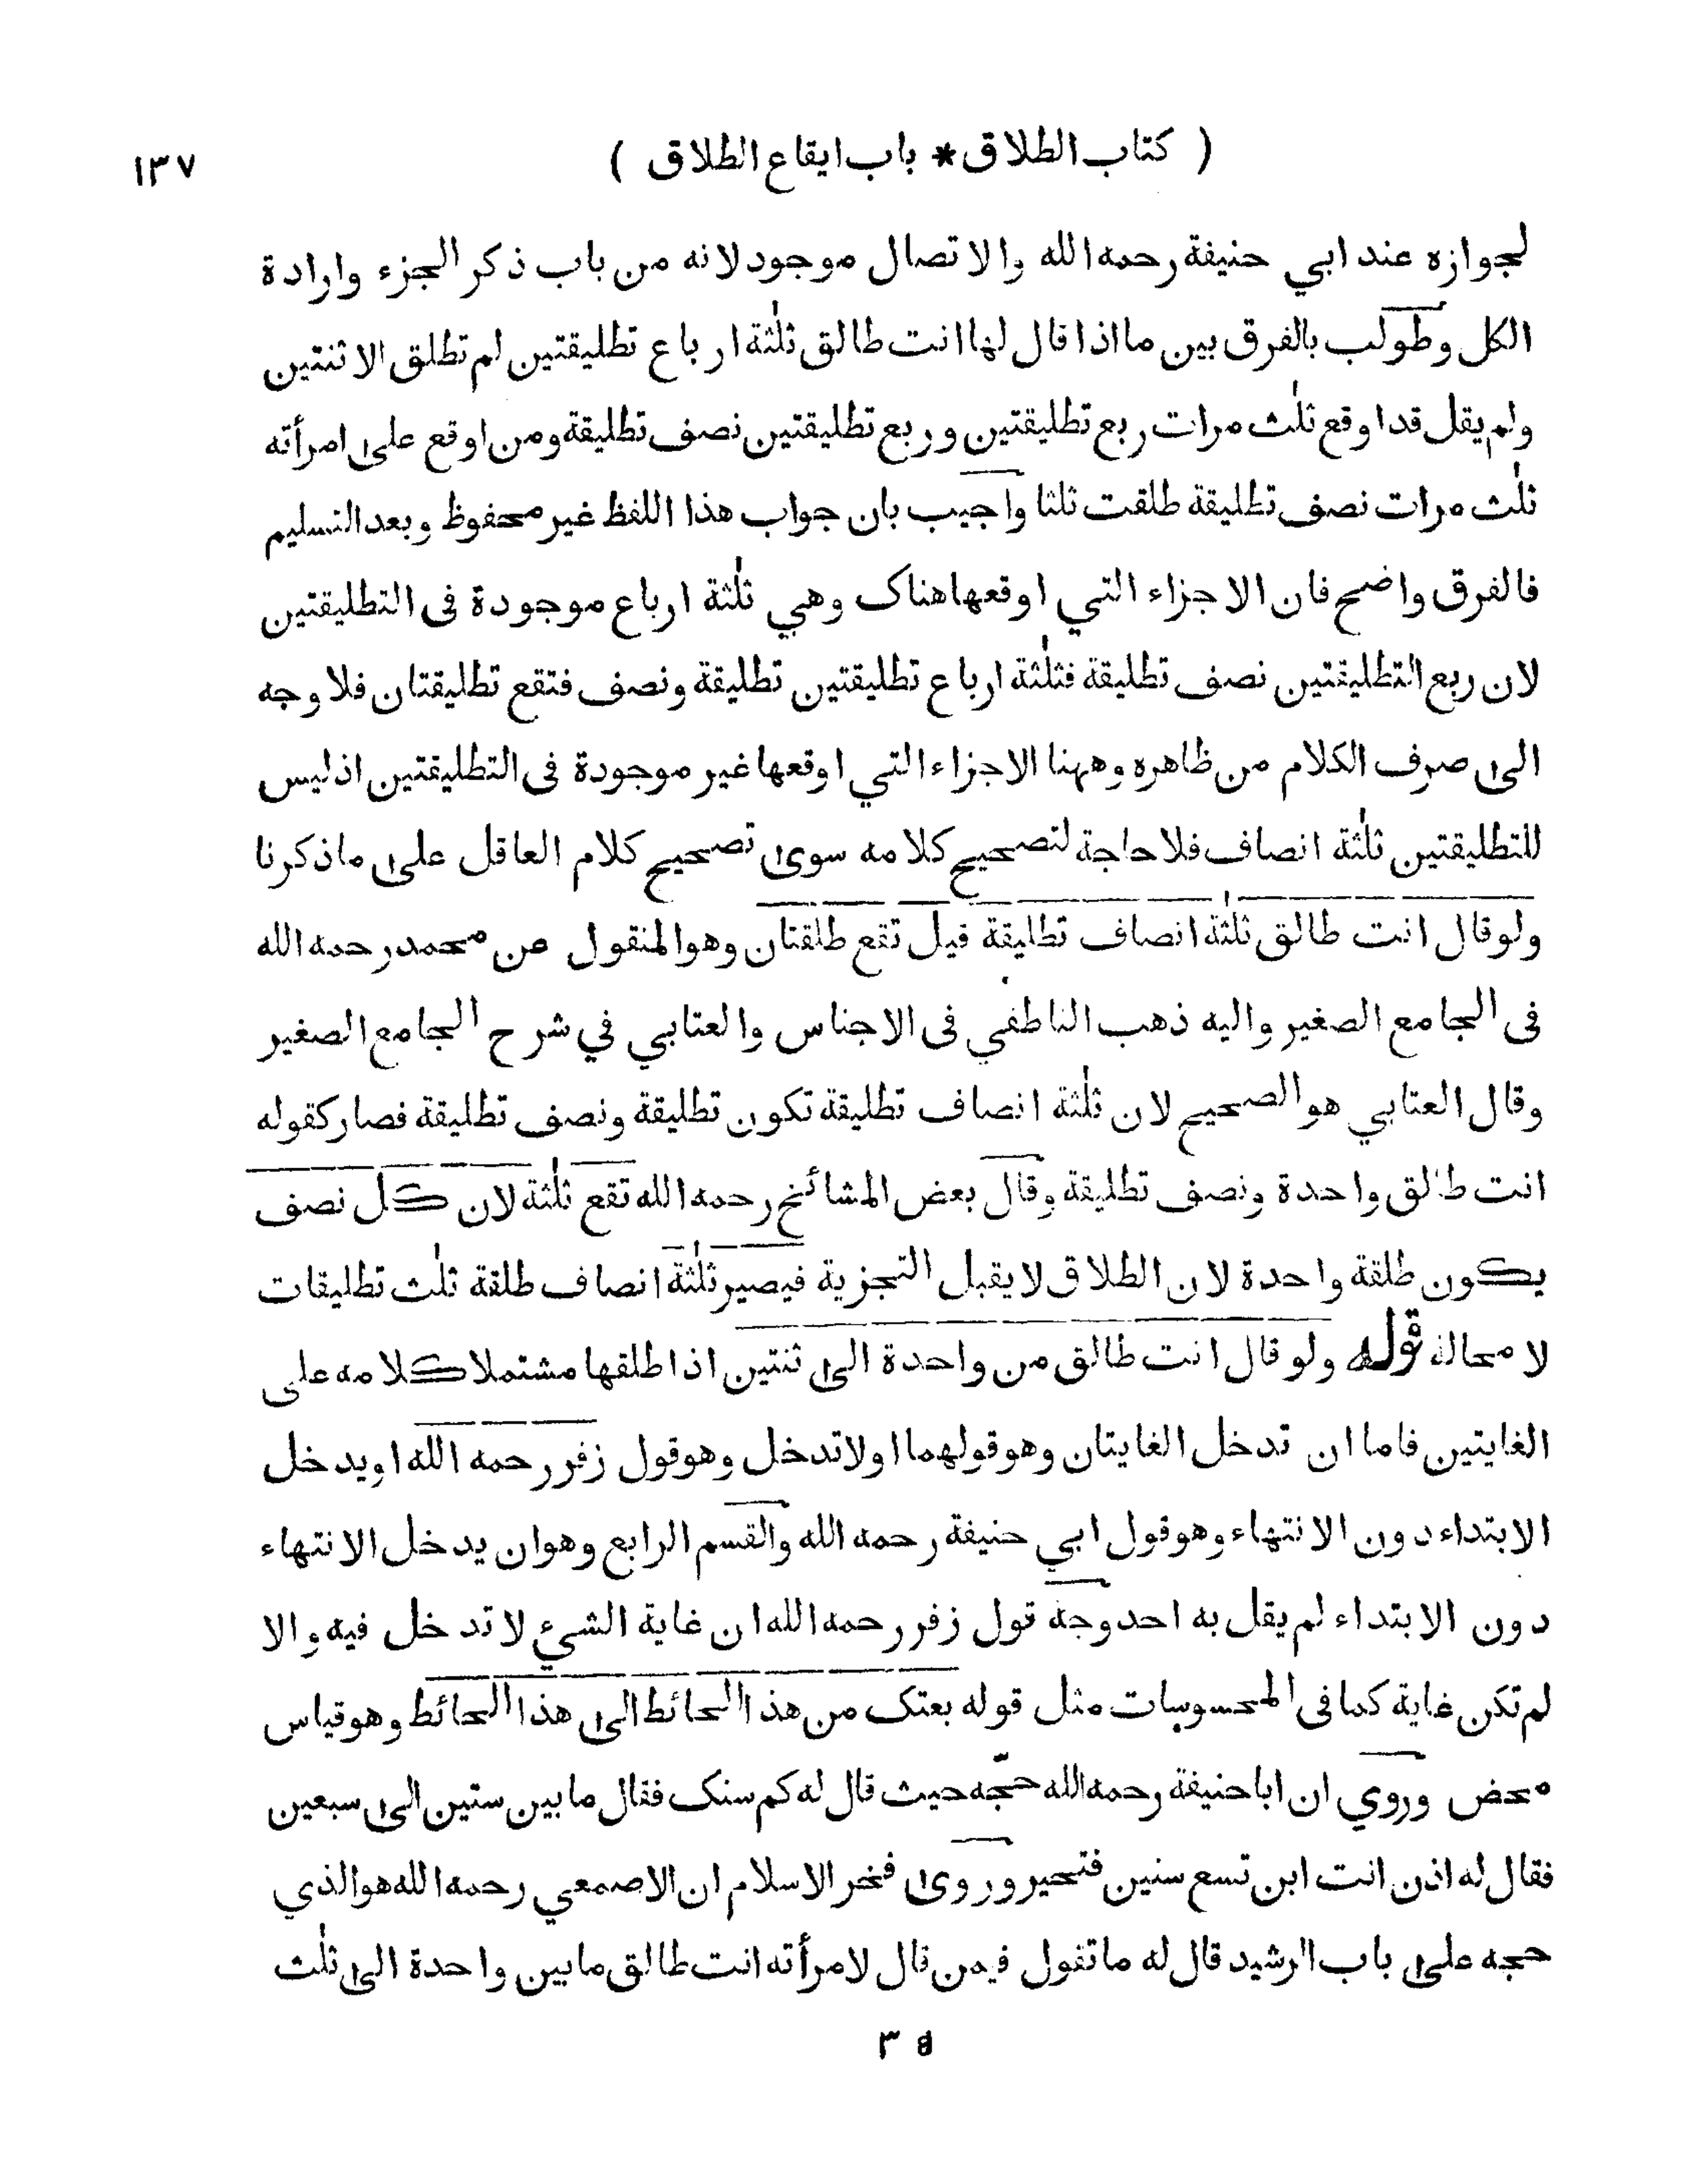 ( كتاب الطلاق * باب ايقاع الطلاق )
١٣٧
لجوازه عند ابي حنيفة رحمه الله والاتصال موجود لانه من باب ذكر الجزء وارادة
الكل وطولب بالفرق بين ما اذا قال لها انت طالق ثلٰثة ارباع تطليقتين لم تطلق الا ثنتين
ولم يقل قد اوقع ثلٰث مرات ربع تطليقتين وربع تطليقتين نصف تطليقة ومن اوقع على امرأته
ثلٰث مرات نصف تطليقة طلقت ثلثا واجيب بان جواب هذا اللفظ غير محفوظ وبعد التسليم
فالفرق واضح فان الاجزاء التي اوقعها هناك وهي ثلٰثة ارباع موجودة فى التطليقتين
لان ربع التطليقتين نصف تطليقة فثلٰثة ارباع تطليقتين تطليقة ونصف فتقع تطليقتان فلا وجه
الى صرف الكلام من ظاهره وههنا الاجزاء التي اوقعها غير موجودة فى التطليقتين اذ ليس
للتطليقتين ثلٰثة انصاف فلا حاجة لتصحيح كلامه سوى تصحيح كلام العاقل على ما ذكرنا
ولو قال انت طالق ثلٰثة انصاف تطليقة قيل تقع طلقتان وهو المنقول عن محمد رحمه الله
فى الجامع الصغير واليه ذهب الناطفي فى الاجناس والعتابي في شرح الجامع الصغير
وقال العتابي هو الصحيح لان ثلٰثة انصاف تطليقة تكون تطليقة ونصف تطليقة فصار كقوله
انت طالق واحدة ونصف تطليقة وقال بعض المشائخ رحمه الله تقع ثلٰثة لان كل نصف
يكون طلقة واحدة لان الطلاق لا يقبل التجزية فيصير ثلٰثة انصاف طلقة ثلٰث تطليقات
لا محالة قوله ولو قال انت طالق من واحدة الى ثنتين اذا طلقها مشتملا كلامه على
الغايتين فاما ان تدخل الغايتان وهو قولهما اولا تدخل وهو قول زفر رحمه الله او يدخل
الابتداء دون الانتهاء وهو قول ابي حنيفة رحمه الله والقسم الرابع وهو ان يدخل الانتهاء
دون الابتداء لم يقل به احد وجه قول زفر رحمه الله ان غاية الشيء لا تدخل فيه والا
لم تكن غاية كما فى المحسوسات مثل قوله بعتك من هذا الحائط الى هذا الحائط وهو قياس
محض وروي ان ابا حنيفة رحمه الله حجّه حيث قال له كم سنك فقال ما بين ستين الى سبعين
فقال له اذن انت ابن تسع سنين فتحير وروى فخر الاسلام ان الاصمعي رحمه الله هو الذي
حجه على باب الرشيد قال له ما تقول فيمن قال لامرأته انت طالق ما بين واحدة الى ثلٰث